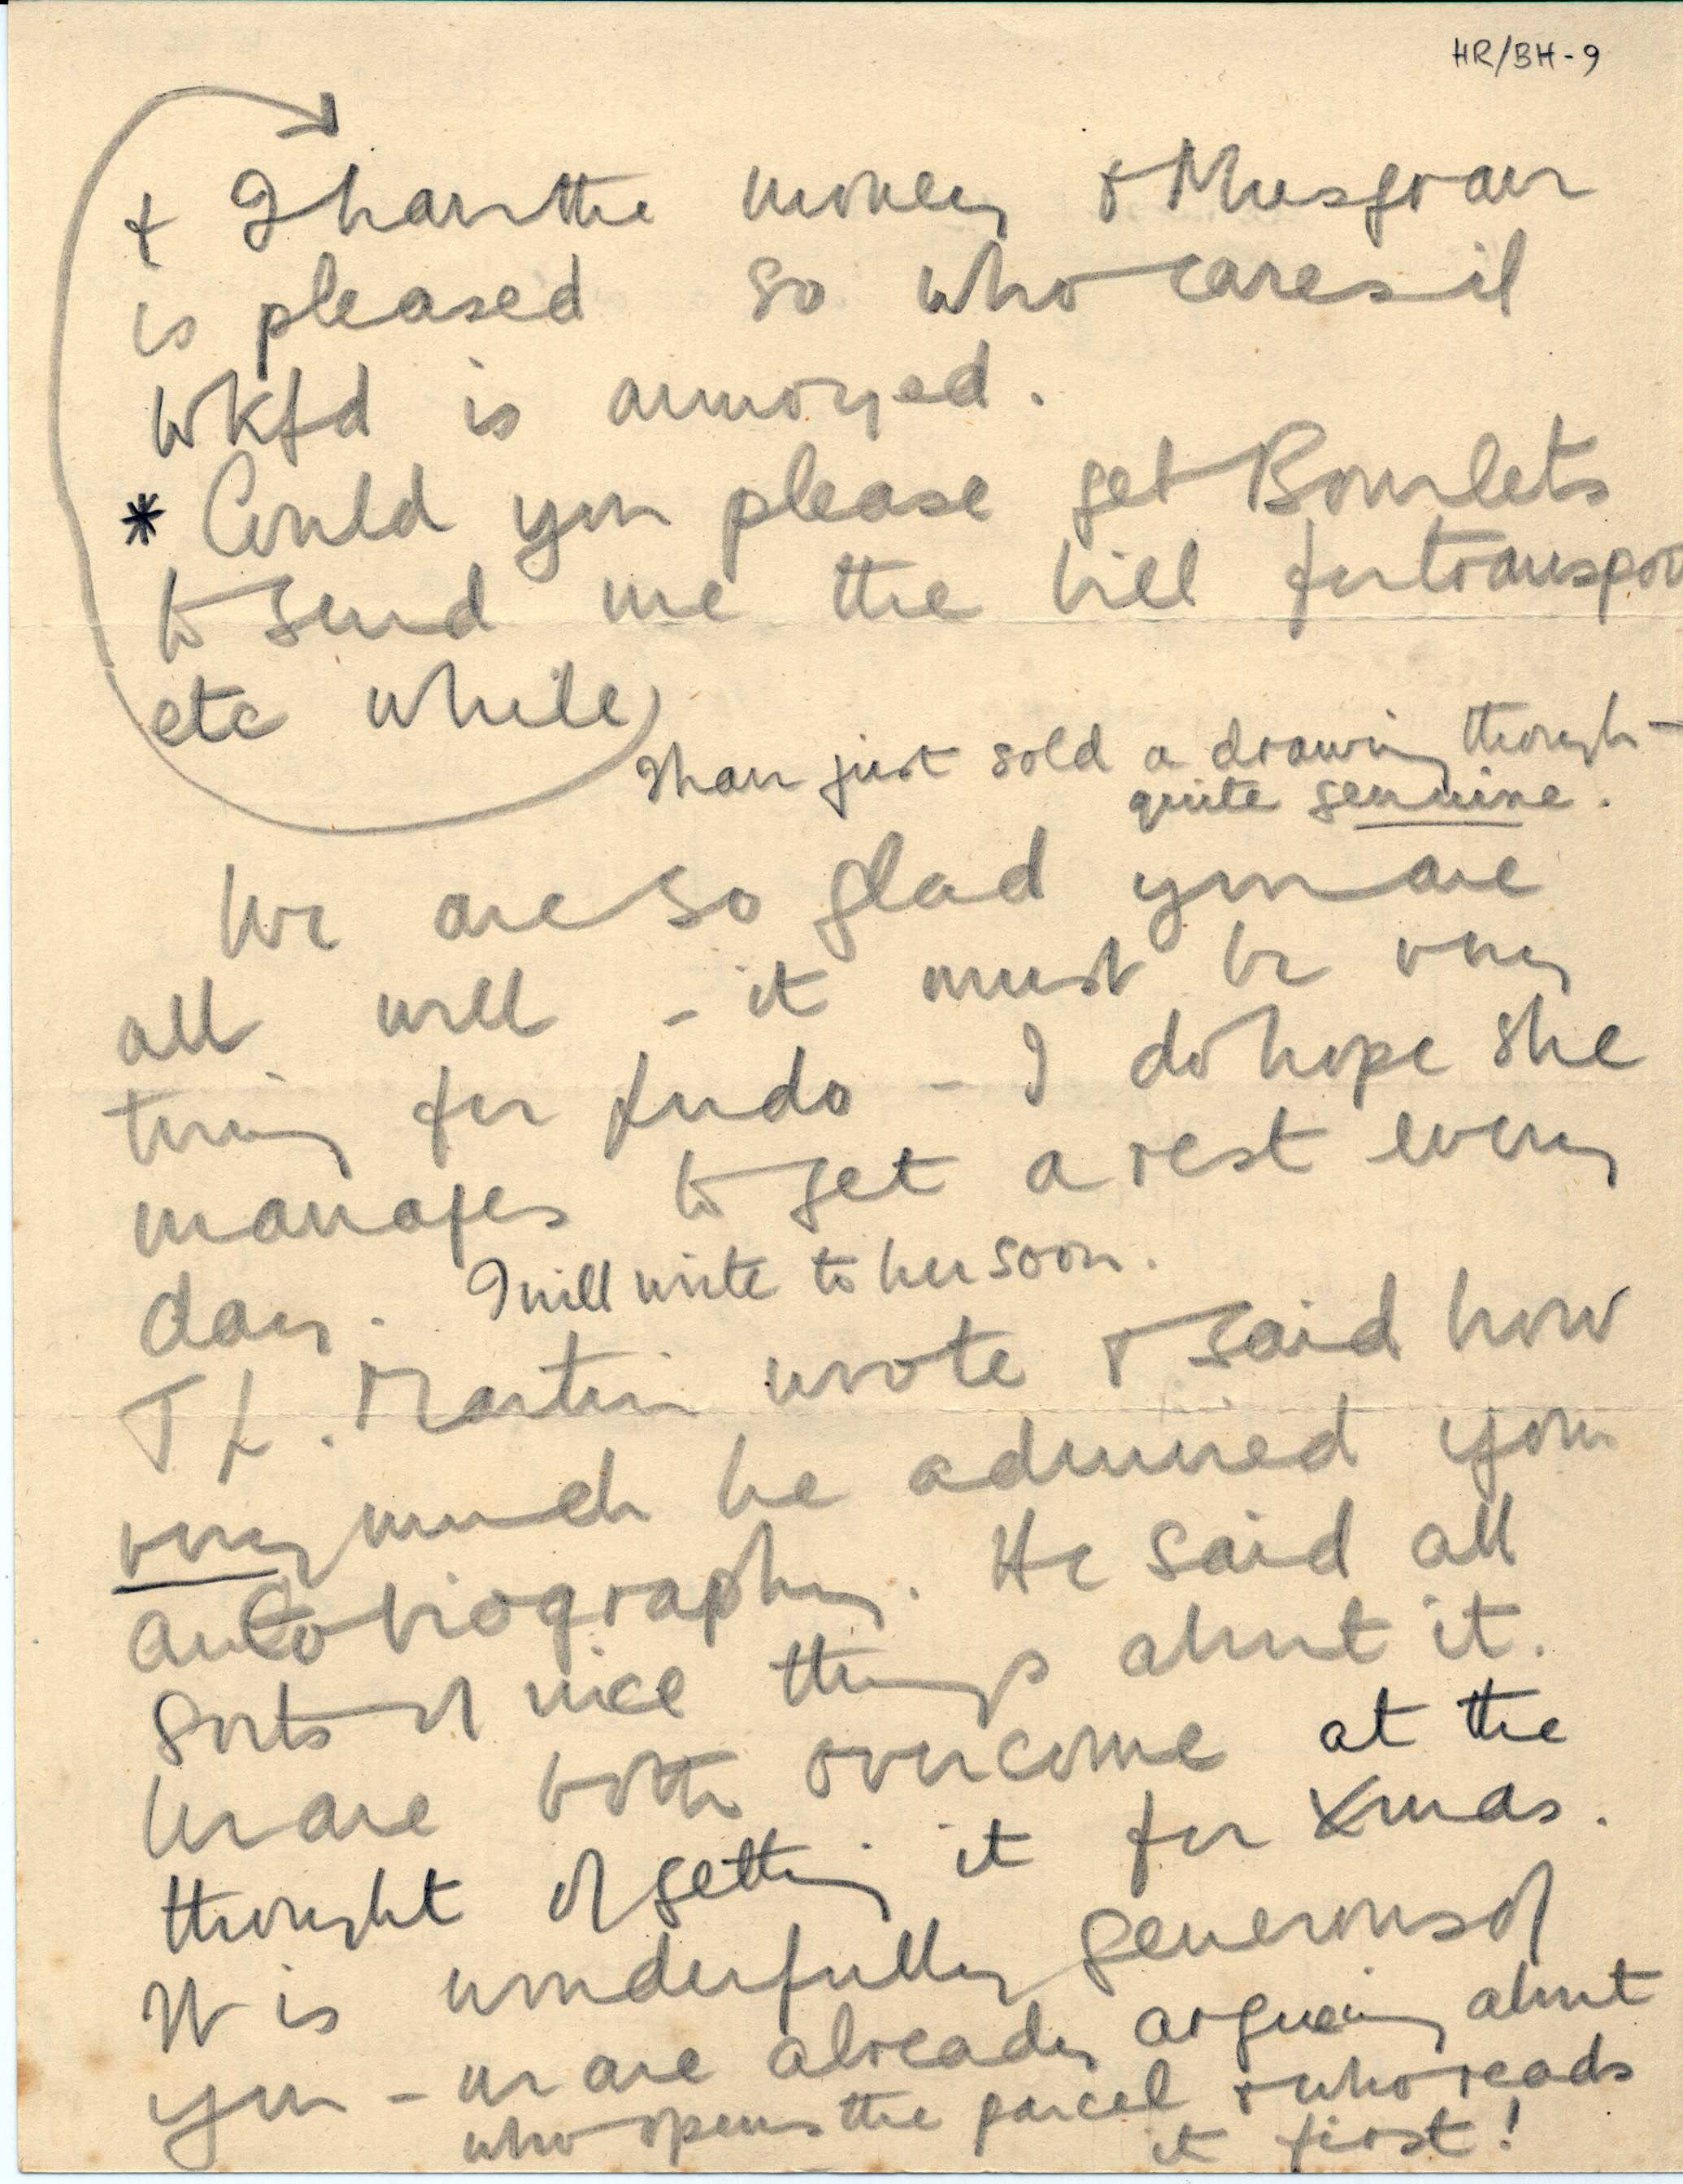 HR/BH-9
+ I have the money & Musgrave
is pleased so who cares if
Wkfd is annoyed.
* Could you please get Bourlets
to send me the bill for transpor
etc while
I have just sold a drawing though –
quite genuine.
We are so glad you are
all well – it must be very
tiring for Ludo – I do hope she
manages to get a rest every
day. I will write to her soon.
J L. Martin wrote & said how
very much he admired your
autobiography. He said all
sorts of nice things about it.
We are both overcome at the
thought of getting it for Xmas.
It is wonderfully generous of
you – we are already argueing about
who opens the parcel & who reads
it first!